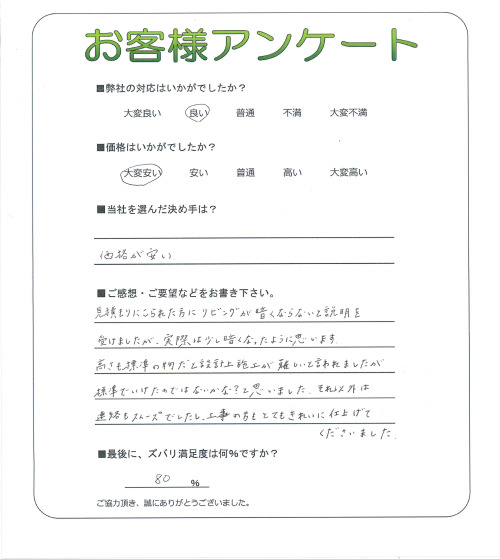 お客様アンケート
■弊社の対応はいかがでしたか？
大変良い 良い 普通 不満 大変不満
■価格はいかがでしたか？
大変安い 安い 普通 高い 大変高い
■当社を選んだ決め手は？
価格が安い
■ご感想・ご要望などをお書き下さい。
見積もりにこられた方に リビングが暗くならないと説明を
受けましたが、実際は少し暗くなったように思います。
高さも標準の物だと設計上施工が難しいと言われましたが
標準でいけたのではないかな？と思いました。それ以外は
連絡もスムーズでしたし、工事の方もとてもきれいに仕上げて
くださいました。
■最後に、ズバリ満足度は何％ですか？
80 ％
ご協力頂き、誠にありがとうございました。